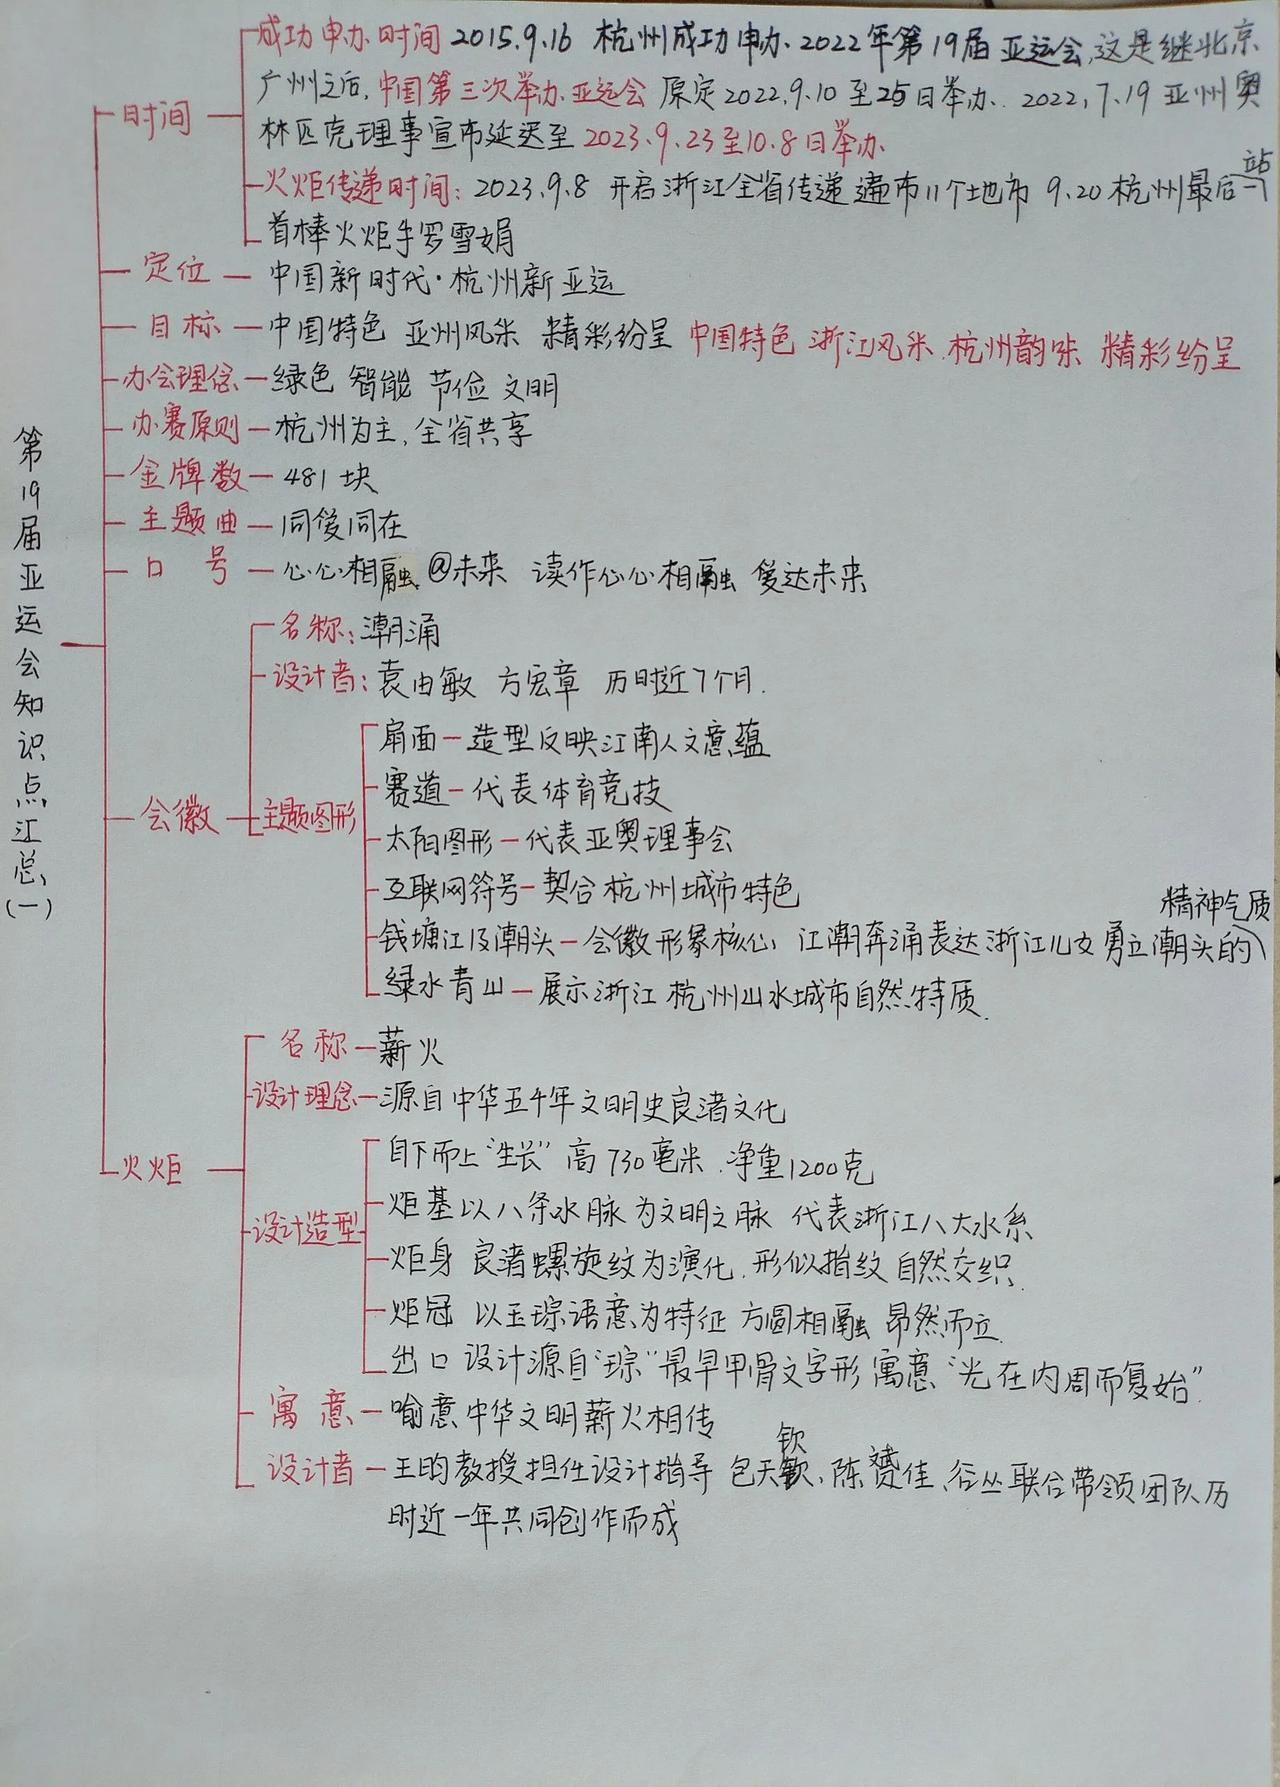 第19届亚运会知识点汇总(一)
时间
成功申办时间 2015.9.16 杭州成功申办2022年第19届亚运会,这是继北京
广州之后,中国第三次举办亚运会 原定2022.9.10至25日举办. 2022,7.19 亚州奥
林匹克理事宣布延迟至 2023.9.23至10.8日举办
火炬传递时间: 2023.9.8 开启浙江全省传递 遍布11个地市 9.20 杭州最后一站
首棒火炬手罗雪娟
定位 — 中国新时代·杭州新亚运
目标 — 中国特色 亚州风采 精彩纷呈 中国特色 浙江风采 杭州韵味 精彩纷呈
办会理念 — 绿色 智能 节俭 文明
办赛原则 — 杭州为主,全省共享
金牌数 — 481块
主题曲 — 同爱同在
口号 — 心心相融 @未来 读作心心相融 爱达未来
会徽
名称: 潮涌
设计者: 袁由敏 方宏章 历时近7个月.
主题图形
扇面 — 造型反映江南人文意蕴
赛道 — 代表体育竞技
太阳图形 — 代表亚奥理事会
互联网符号 — 契合杭州城市特色
钱塘江及潮头 — 会徽形象核心 江潮奔涌表达浙江儿女勇立潮头的精神气质
绿水青山 — 展示浙江杭州山水城市自然特质.
火炬
名称 — 薪火
设计理念 — 源自中华五千年文明史良渚文化
设计造型
自下而上“生长” 高730毫米.净重1200克
炬基以八条水脉为文明之脉 代表浙江八大水系
炬身 良渚螺旋纹为演化.形似指纹 自然交织.
炬冠 以玉琮语意为特征 方圆相融 昂然而立.
出口 设计源自“琮”最早甲骨文字形 寓意“光在内周而复始”
寓意 — 喻意中华文明薪火相传
设计者 — 王昀教授担任设计指导 包天钦、陈赟佳、谷丛联合带领团队历
时近一年共同创作而成